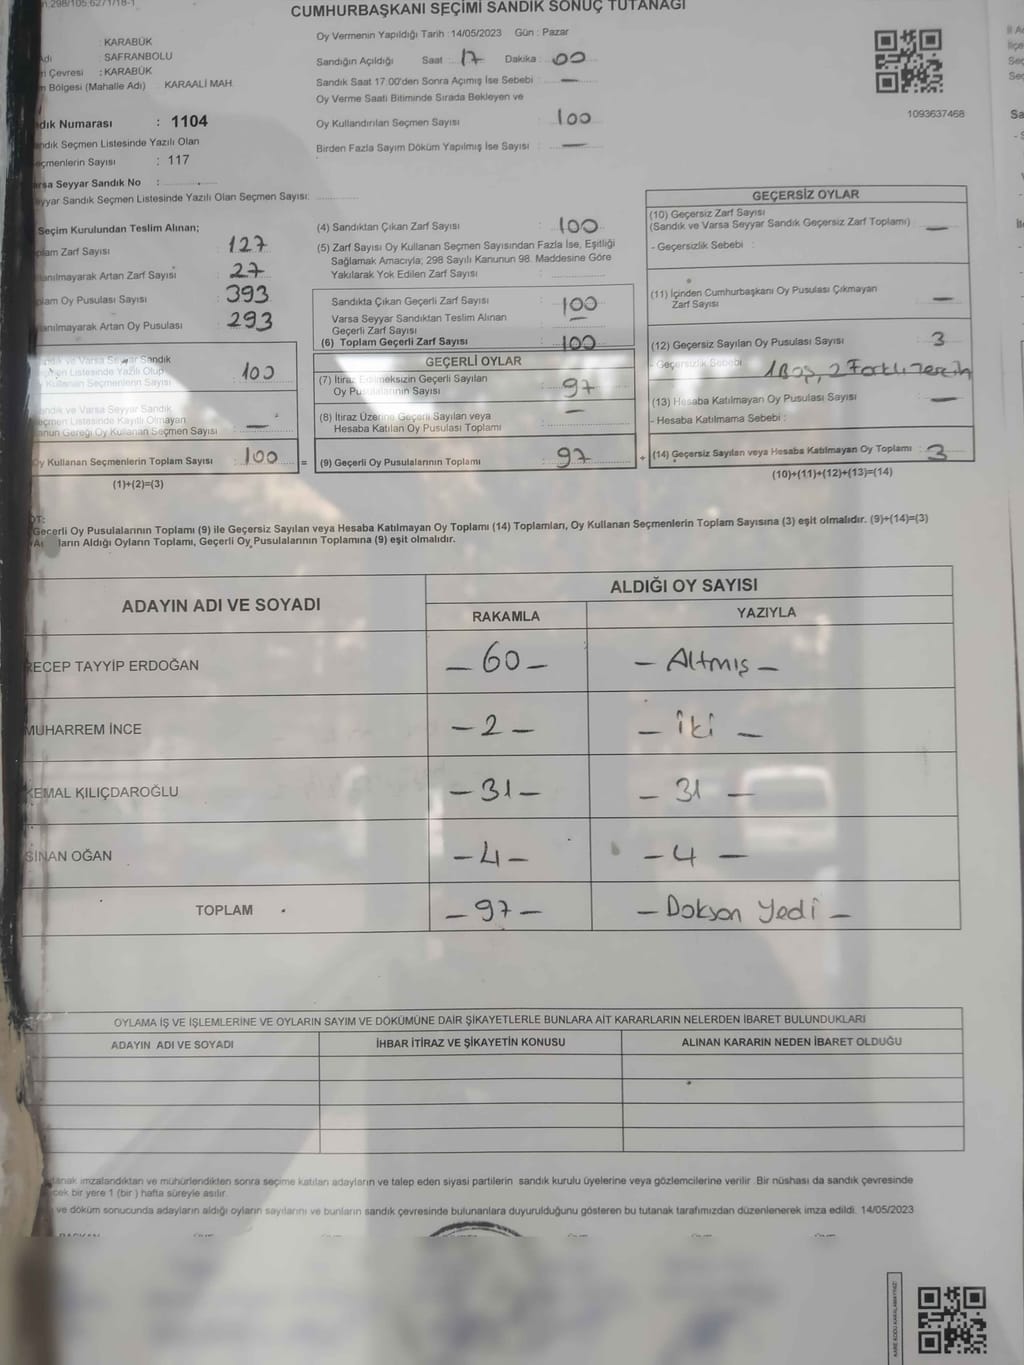 CUMHURBAŞKANI SEÇİMİ SANDIK SONUÇ TUTANAĞI
: KARABÜK
: SAFRANBOLU
Çevresi : KARABÜK
Bölgesi (Mahalle Adı) KARAALİ MAH.
Numarası : 1104
Sandık Seçmen Listesinde Yazılı Olan
Seçmenlerin Sayısı : 117
Varsa Seyyar Sandık No :
Seyyar Sandık Seçmen Listesinde Yazılı Olan Seçmen Sayısı:
Oy Vermenin Yapıldığı Tarih : 14/05/2023 Gün : Pazar
Sandığın Açıldığı Saat : 17 Dakika : 00
Sandık Saat 17:00'den Sonra Açımış İse Sebebi : —
Oy Verme Saati Bitiminde Sırada Bekleyen ve
Oy Kullandırılan Seçmen Sayısı : 100
Birden Fazla Sayım Döküm Yapılmış İse Sayısı : —
1093637468
Seçim Kurulundan Teslim Alınan;
Zarf Sayısı : 127
Artan Zarf Sayısı : 27
Oy Pusulası Sayısı : 393
Artan Oy Pusulası : 293
ve Varsa Seyyar Sandık
Listesinde Yazılı Olup
Kullanan Seçmenlerin Sayısı : 100
ve Varsa Seyyar Sandık
Listesinde Kayıtlı Olmayan
Kanun Gereği Oy Kullanan Seçmen Sayısı : —
Oy Kullanan Seçmenlerin Toplam Sayısı : 100 =
(1)+(2)=(3)
(4) Sandıktan Çıkan Zarf Sayısı : 100
(5) Zarf Sayısı Oy Kullanan Seçmen Sayısından Fazla İse, Eşitliği
Sağlamak Amacıyla; 298 Sayılı Kanunun 98. Maddesine Göre
Yakılarak Yok Edilen Zarf Sayısı :
Sandıkta Çıkan Geçerli Zarf Sayısı : 100
Varsa Seyyar Sandıktan Teslim Alınan
Geçerli Zarf Sayısı : —
(6) Toplam Geçerli Zarf Sayısı : 100
GEÇERLİ OYLAR
(7) İtiraz Edilmeksizin Geçerli Sayılan
Oy Pusulalarının Sayısı : 97
(8) İtiraz Üzerine Geçerli Sayılan veya
Hesaba Katılan Oy Pusulası Toplamı : —
(9) Geçerli Oy Pusulalarının Toplamı : 97 +
GEÇERSİZ OYLAR
(10) Geçersiz Zarf Sayısı
(Sandık ve Varsa Seyyar Sandık Geçersiz Zarf Toplamı) : —
- Geçersizlik Sebebi :
(11) İçinden Cumhurbaşkanı Oy Pusulası Çıkmayan
Zarf Sayısı : —
(12) Geçersiz Sayılan Oy Pusulası Sayısı : 3
- Geçersizlik Sebebi : 1 Boş, 2 Farklı Tercih
(13) Hesaba Katılmayan Oy Pusulası Sayısı : —
- Hesaba Katılmama Sebebi :
(14) Geçersiz Sayılan veya Hesaba Katılmayan Oy Toplamı : 3
(10)+(11)+(12)+(13)=(14)
Geçerli Oy Pusulalarının Toplamı (9) ile Geçersiz Sayılan veya Hesaba Katılmayan Oy Toplamı (14) Toplamları, Oy Kullanan Seçmenlerin Toplam Sayısına (3) eşit olmalıdır. (9)+(14)=(3)
Aldığı Oyların Toplamı, Geçerli Oy Pusulalarının Toplamına (9) eşit olmalıdır.
ADAYIN ADI VE SOYADI ALDIĞI OY SAYISI
RAKAMLA YAZIYLA
RECEP TAYYİP ERDOĞAN – 60 – – Altmış –
MUHARREM İNCE – 2 – – iki –
KEMAL KILIÇDAROĞLU – 31 – – 31 –
SİNAN OĞAN – 4 – – 4 –
TOPLAM – 97 – – Doksan Yedi –
OYLAMA İŞ VE İŞLEMLERİNE VE OYLARIN SAYIM VE DÖKÜMÜNE DAİR ŞİKAYETLERLE BUNLARA AİT KARARLARIN NELERDEN İBARET BULUNDUKLARI
ADAYIN ADI VE SOYADI İHBAR İTİRAZ VE ŞİKAYETİN KONUSU ALINAN KARARIN NEDEN İBARET OLDUĞU
imzalandıktan ve mühürlendikten sonra seçime katılan adayların ve talep eden siyasi partilerin sandık kurulu üyelerine veya gözlemcilerine verilir. Bir nüshası da sandık çevresinde
bir yere 1 (bir) hafta süreyle asılır.
ve döküm sonucunda adayların aldığı oyların sayılarını ve bunların sandık çevresinde bulunanlara duyurulduğunu gösteren bu tutanak tarafımızdan düzenlenerek imza edildi. 14/05/2023